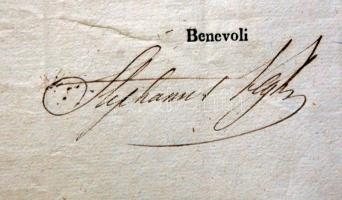 Benevoli
Stephanus